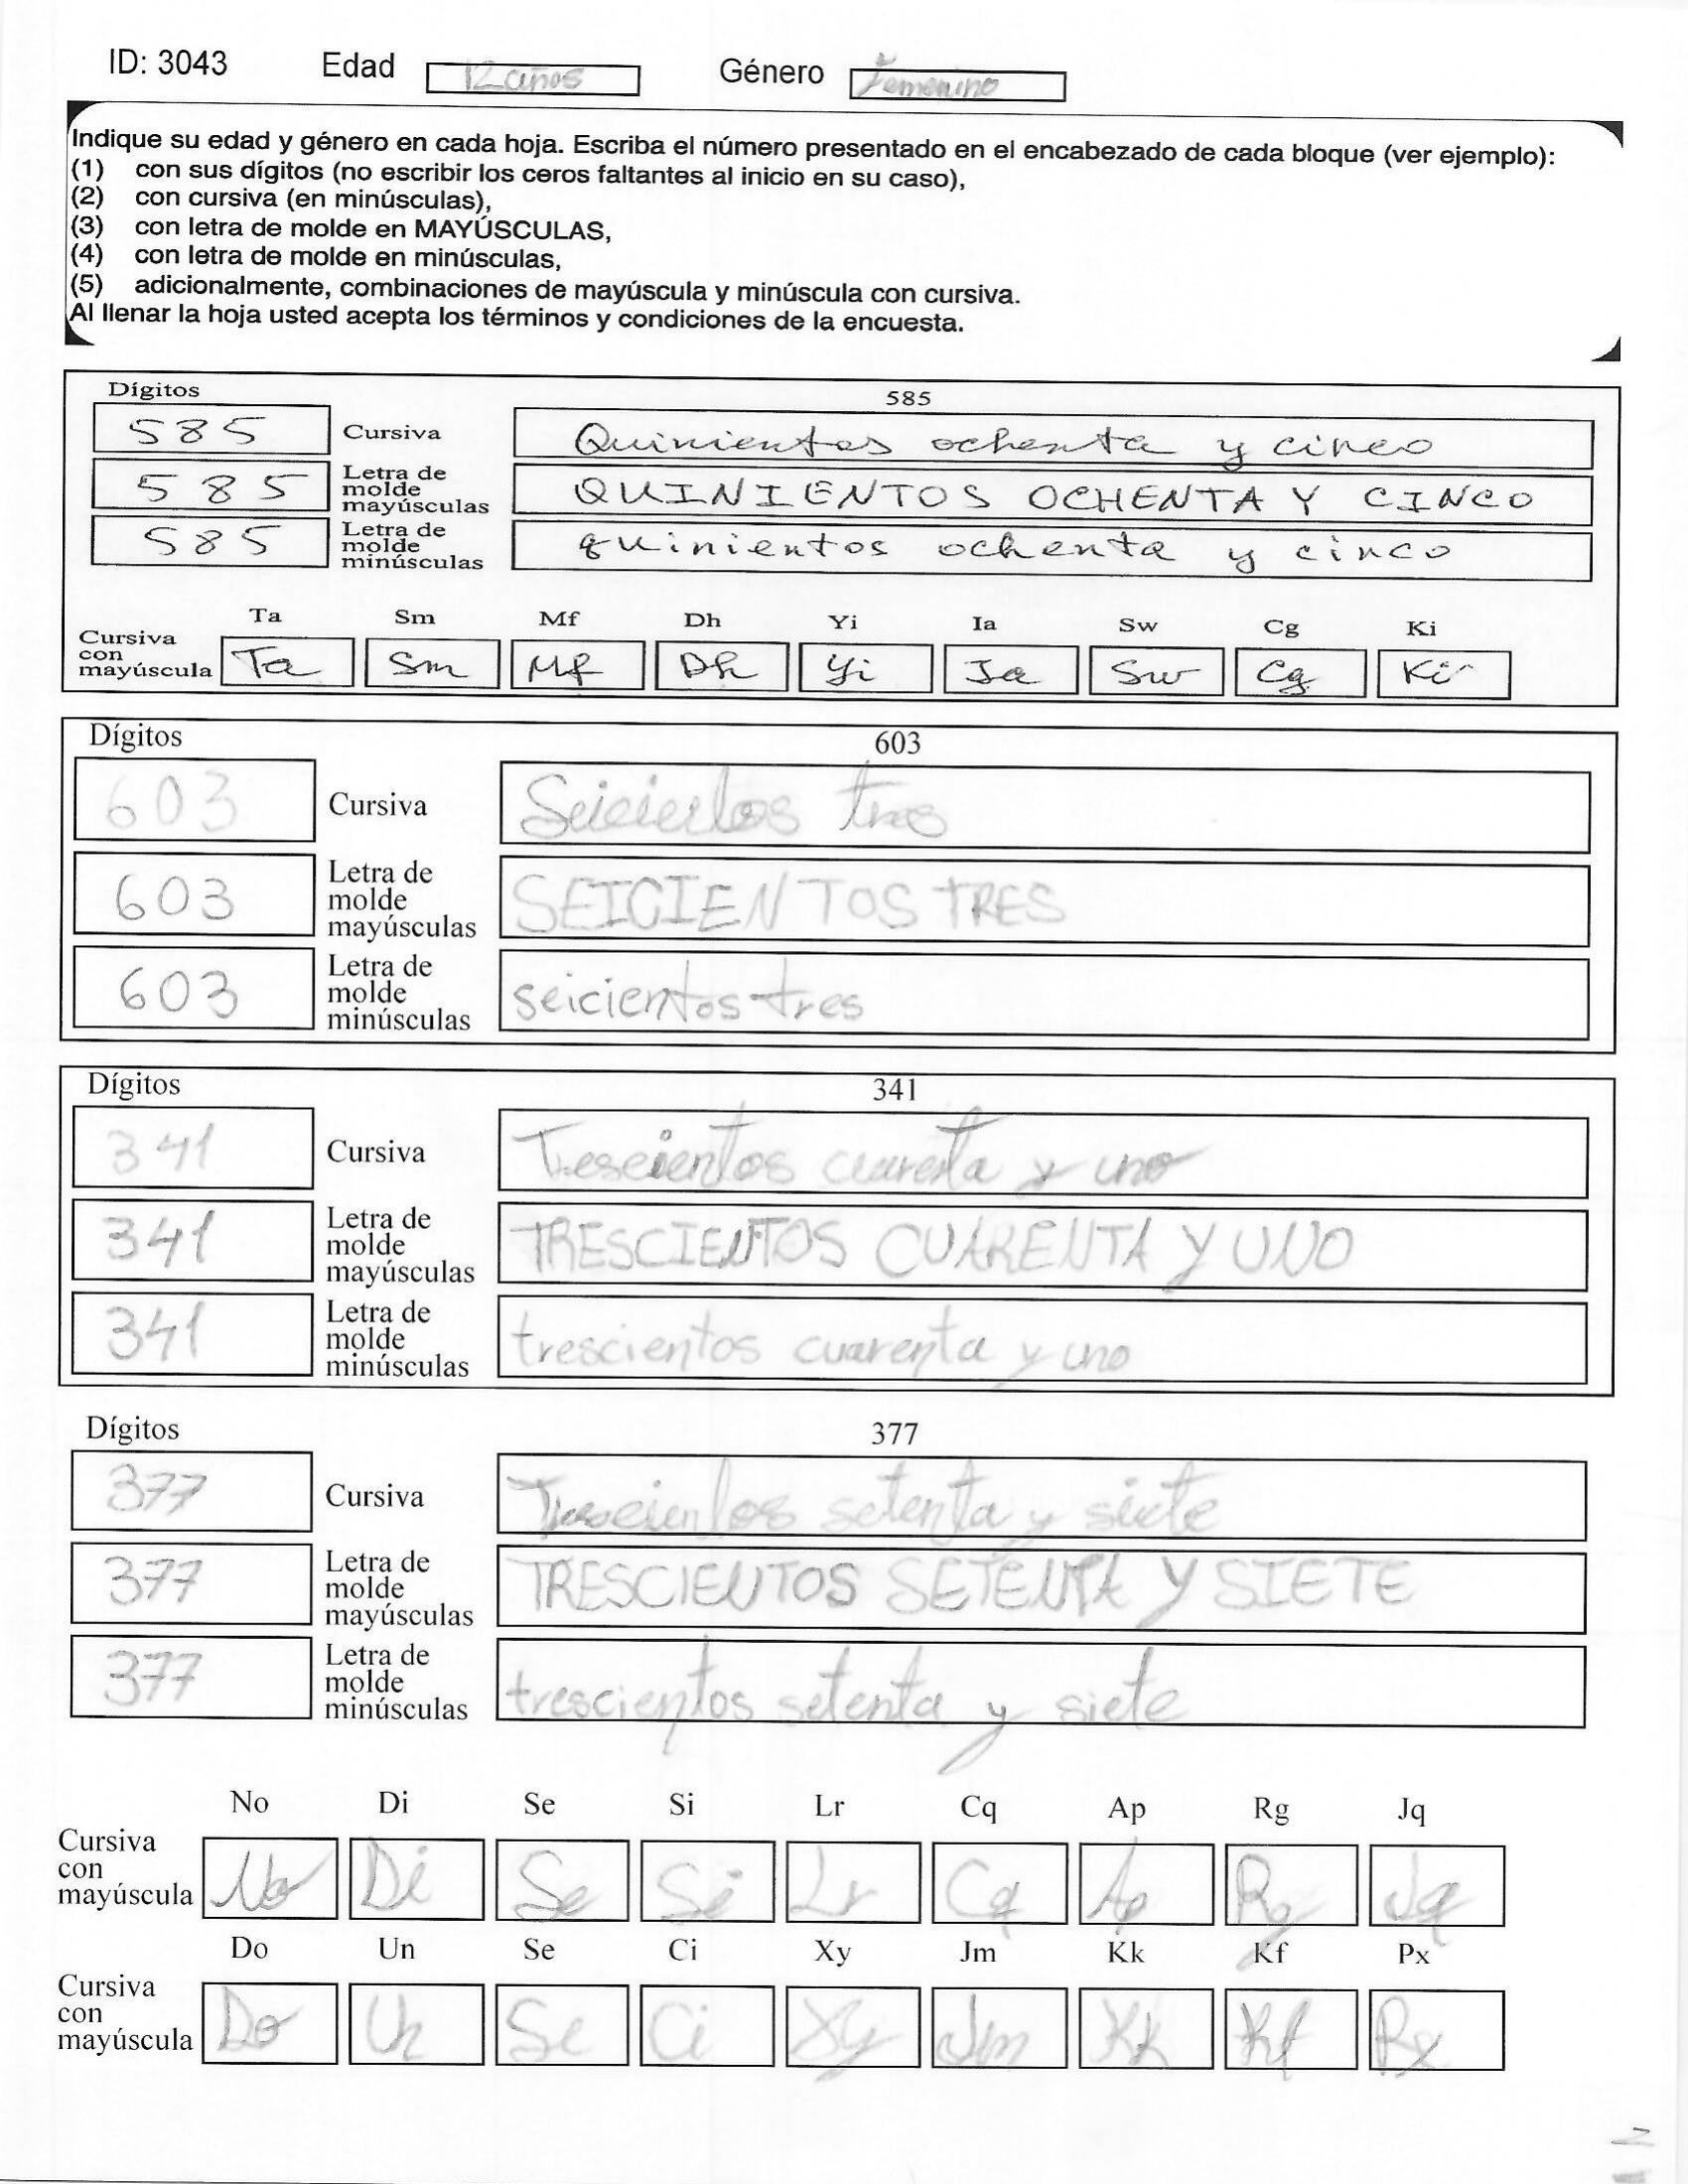 ID: 3043 Edad 12 años Género Femenino
Indique su edad y género en cada hoja. Escriba el número presentado en el encabezado de cada bloque (ver ejemplo):
(1) con sus dígitos (no escribir los ceros faltantes al inicio en su caso),
(2) con cursiva (en minúsculas),
(3) con letra de molde en MAYÚSCULAS,
(4) con letra de molde en minúsculas,
(5) adicionalmente, combinaciones de mayúscula y minúscula con cursiva.
Al llenar la hoja usted acepta los términos y condiciones de la encuesta.
Dígitos 585
585 Cursiva Quinientos ochenta y cinco
585 Letra de molde mayúsculas QUINIENTOS OCHENTA Y CINCO
585 Letra de molde minúsculas quinientos ochenta y cinco
Ta Sm Mf Dh Yi Ia Sw Cg Ki
Cursiva con mayúscula Ta Sm Mf Dh Yi Ia Sw Cg Ki
Dígitos 603
603 Cursiva Seicientos tres
603 Letra de molde mayúsculas SEICIENTOS TRES
603 Letra de molde minúsculas seicientos tres
Dígitos 341
341 Cursiva Trescientos cuarenta y uno
341 Letra de molde mayúsculas TRESCIENTOS CUARENTA Y UNO
341 Letra de molde minúsculas trescientos cuarenta y uno
Dígitos 377
377 Cursiva Trescientos setenta y siete
377 Letra de molde mayúsculas TRESCIENTOS SETENTA Y SIETE
377 Letra de molde minúsculas trescientos setenta y siete
No Di Se Si Lr Cq Ap Rg Jq
Cursiva con mayúscula No Di Se Si Lr Cq Ap Rg Jq
Do Un Se Ci Xy Jm Kk Kf Px
Cursiva con mayúscula Do Un Se Ci Xy Jm Kk Kf Px